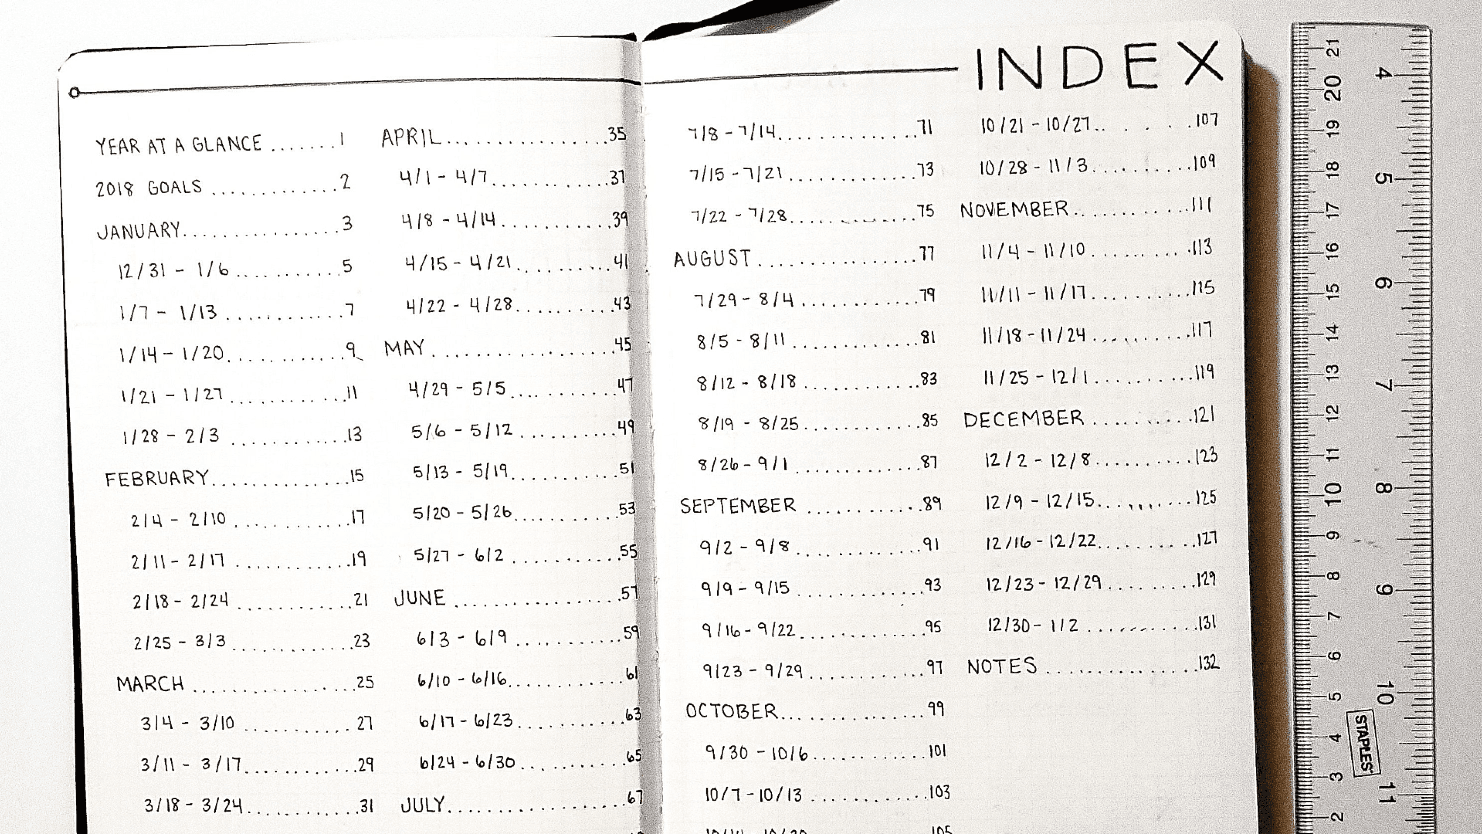 INDEX
YEAR AT A GLANCE .......1
2018 GOALS ............2
JANUARY..............3
12/31 - 1/6...........5
1/7 - 1/13...........7
1/14 - 1/20...........9
1/21 - 1/27...........11
1/28 - 2/3 ...........13
FEBRUARY............15
2/4 - 2/10 ...........17
2/11 - 2/17 ...........19
2/18 - 2/24 ...........21
2/25 - 3/3 ...........23
MARCH ..............25
3/4 - 3/10 ...........27
3/11 - 3/17...........29
3/18 - 3/24...........31
APRIL...............35
4/1 - 4/7............37
4/8 - 4/14...........39
4/15 - 4/21...........41
4/22 - 4/28...........43
MAY................45
4/29 - 5/5...........47
5/6 - 5/12...........49
5/13 - 5/19...........51
5/20 - 5/26...........53
5/27 - 6/2...........55
JUNE ...............57
6/3 - 6/9............59
6/10 - 6/16...........61
6/17 - 6/23...........63
6/24 - 6/30...........65
JULY...............67
7/8 - 7/14............71
7/15 - 7/21...........73
7/22 - 7/28...........75
AUGUST .............77
7/29 - 8/4...........79
8/5 - 8/11...........81
8/12 - 8/18...........83
8/19 - 8/25...........85
8/26 - 9/1...........87
SEPTEMBER ..........89
9/2 - 9/8............91
9/9 - 9/15...........93
9/16 - 9/22...........95
9/23 - 9/29...........97
OCTOBER.............99
9/30 - 10/6..........101
10/7 - 10/13..........103
105
10/21 - 10/27.. . . . .107
10/28 - 11/3..........109
NOVEMBER...........111
11/4 - 11/10..........113
11/11 - 11/17..........115
11/18 - 11/24..........117
11/25 - 12/1..........119
DECEMBER ..........121
12/2 - 12/8..........123
12/9 - 12/15..........125
12/16 - 12/22.........127
12/23 - 12/29.........129
12/30 - 1/2 ..........131
NOTES ..............132
21 20 19 18 17 16 15 14 13 12 11 10 9 8 7 6 5 4 3 2
4 5 6 7 8 9 10 11
STAPLES